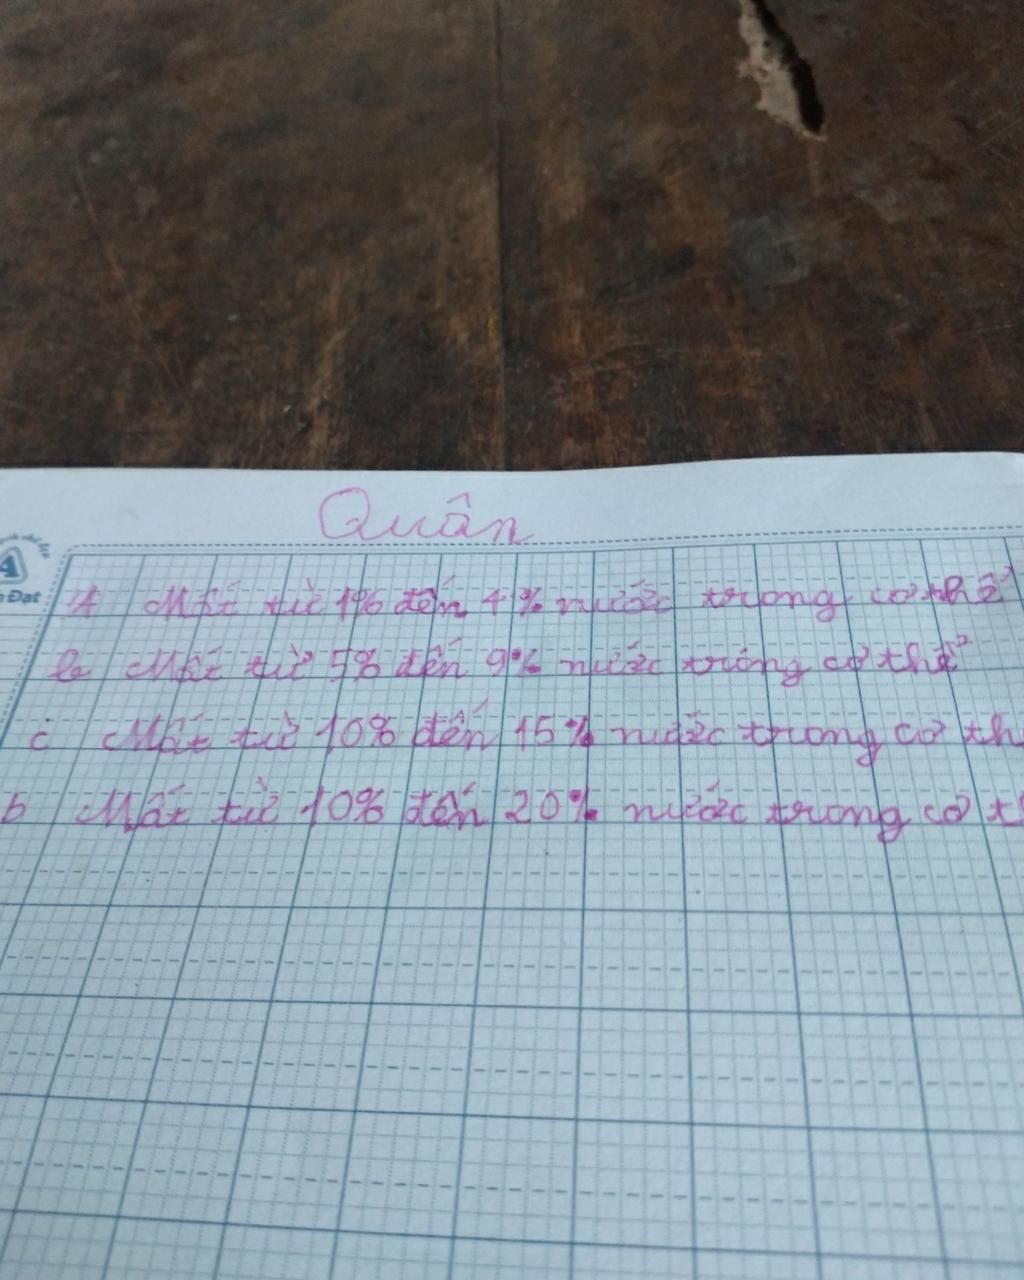 Quân
A
Đạt
A Mất từ 1% đến 4% nước trong cơ thể
b Mất từ 5% đến 9% nước trong cơ thể
c Mất từ 10% đến 15% nước trong cơ th
D Mất từ 10% đến 20% nước trong cơ t